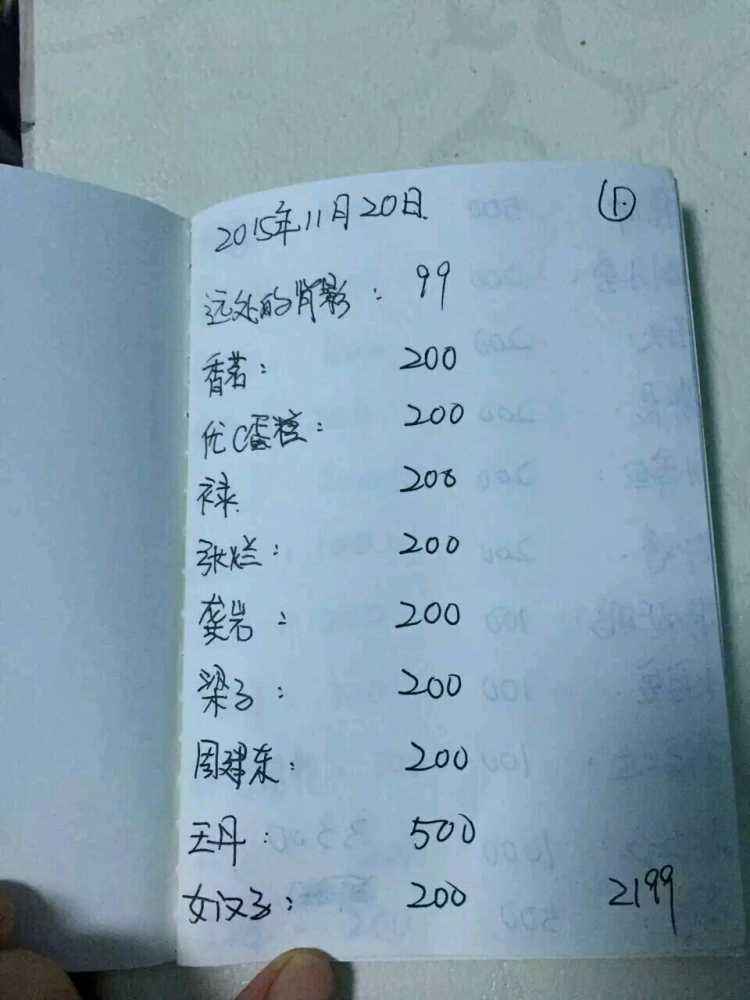 2015年11月20日 ①
远处的背影: 99
香茗: 200
优C蛋糕: 200
禄 200
张烂: 200
龚岩: 200
梁子: 200
周建东: 200
王丹: 500
女汉子: 200 2199